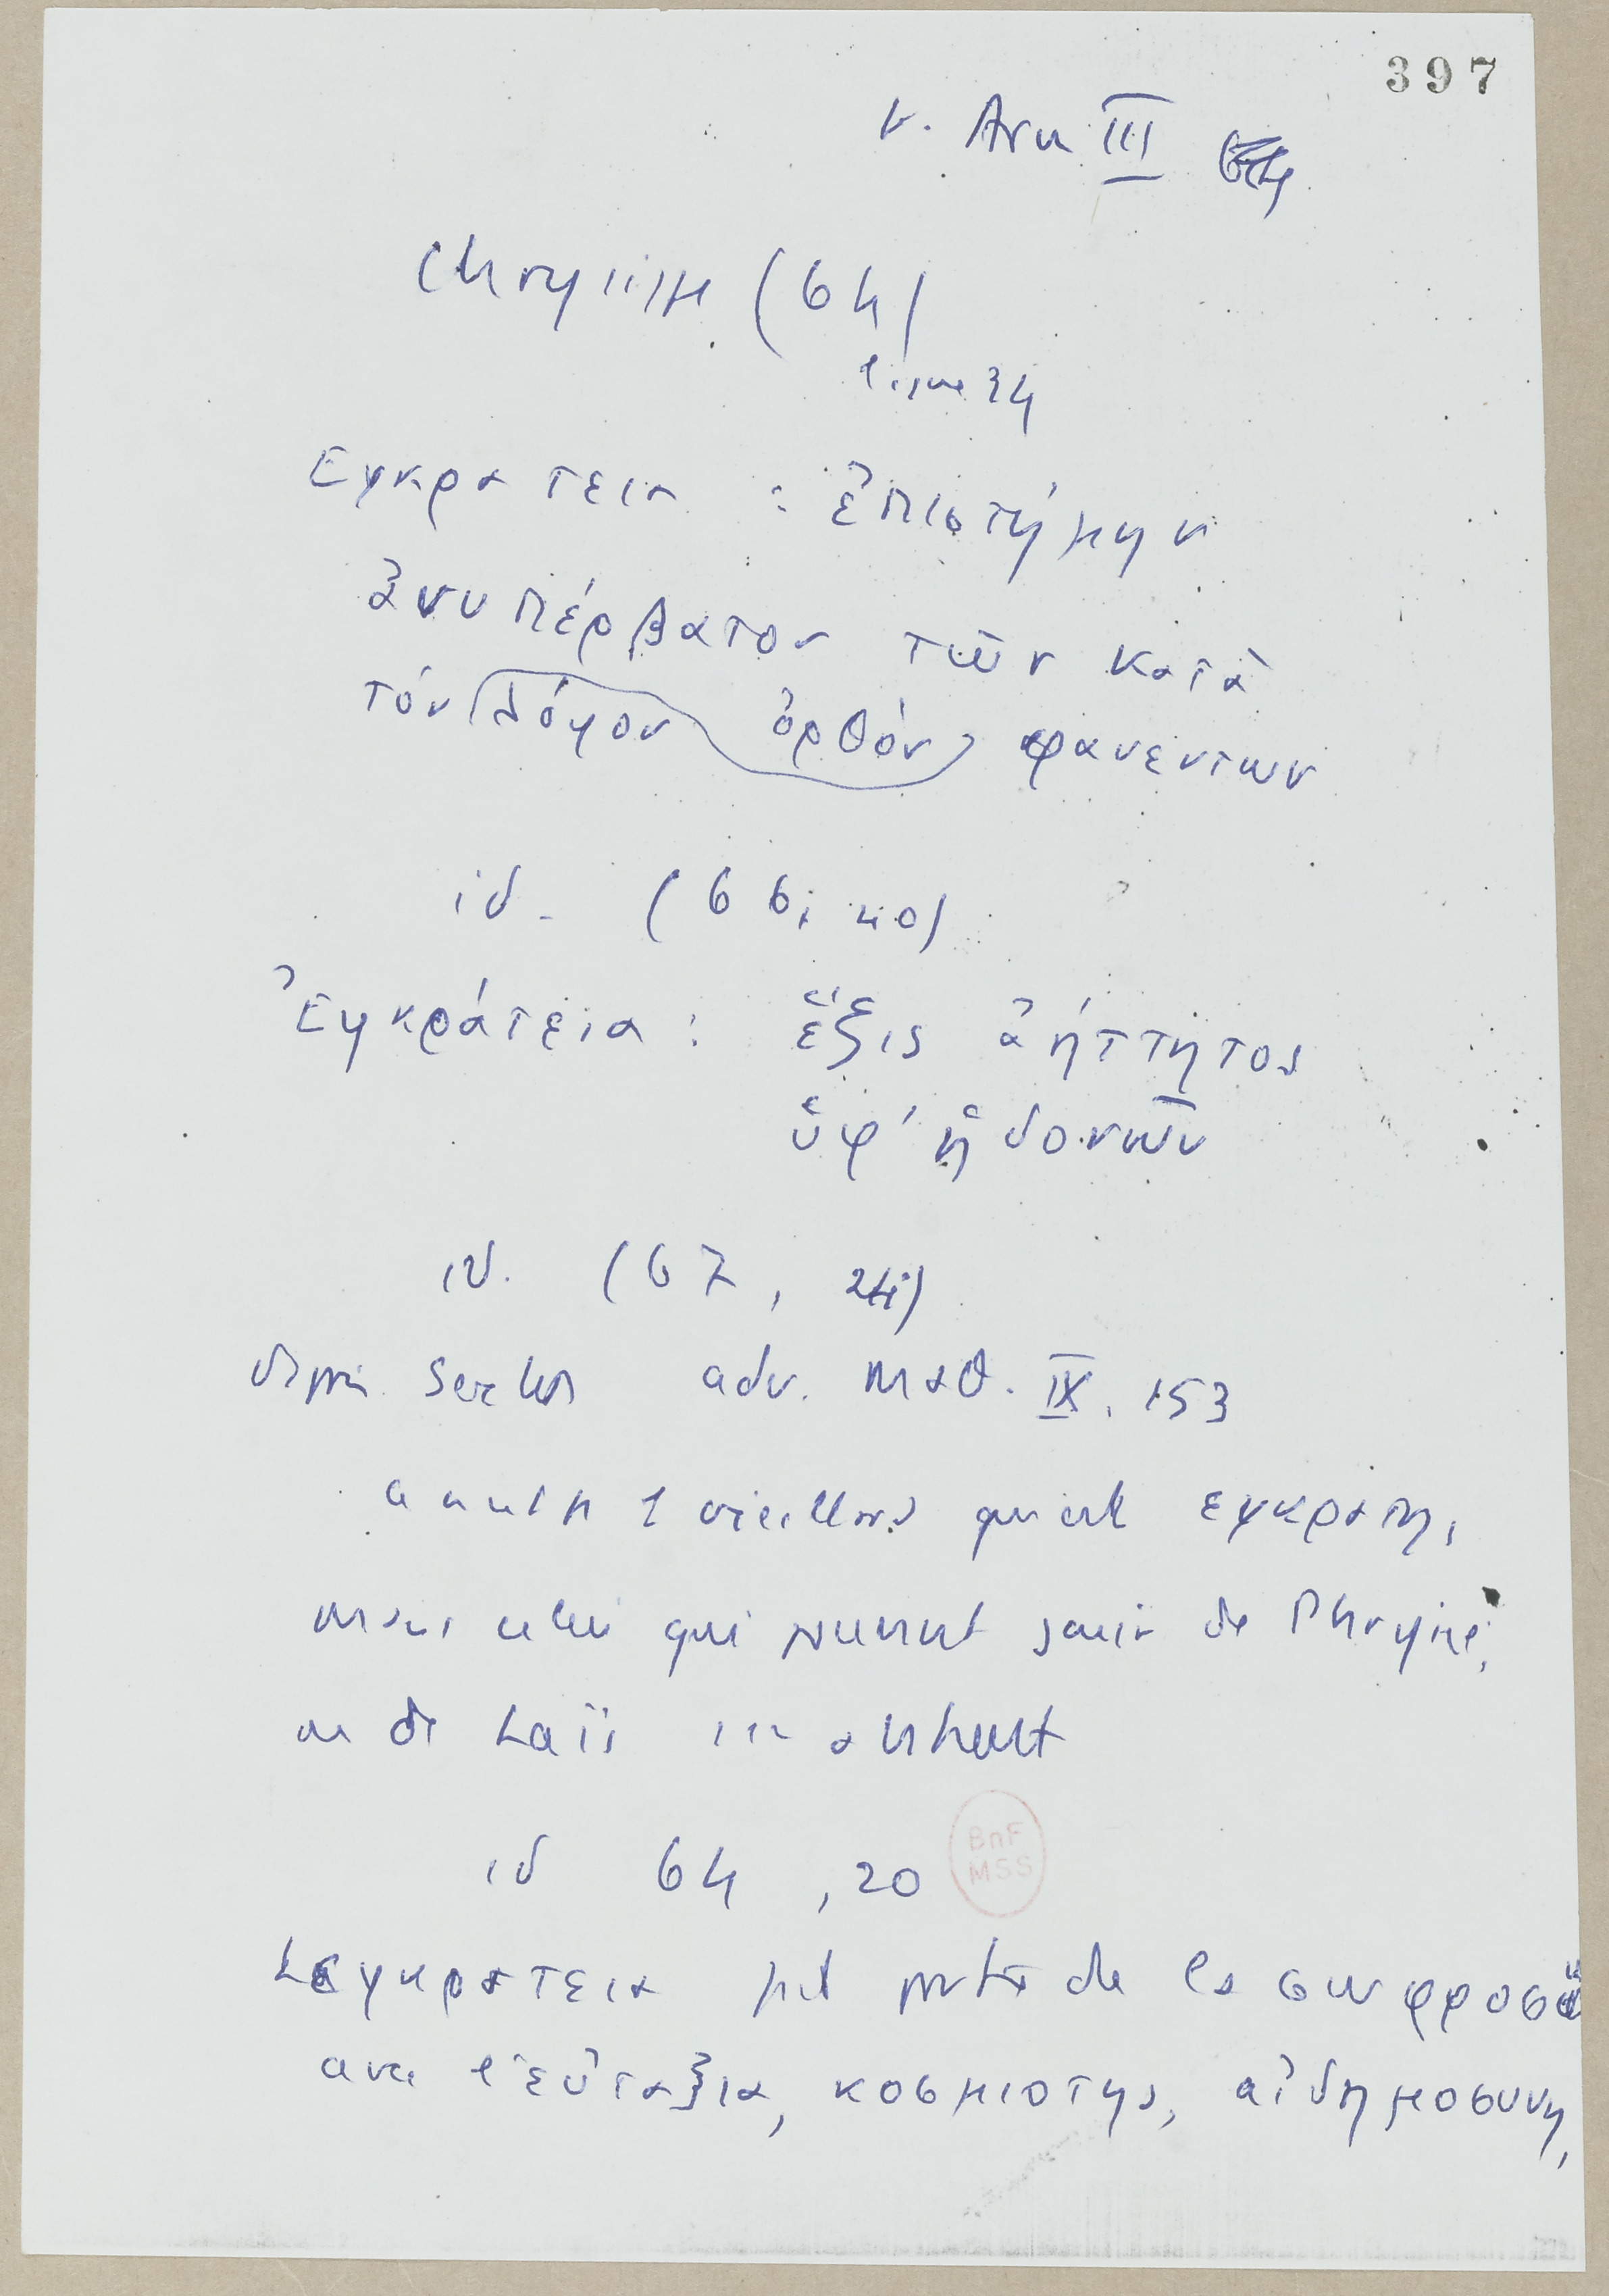 397
v. Arn III
Chrysippe (64)
ligne 34
Εγκρατεια : ἐπιστήμην
ἀνυπέρβατον τῶν κατὰ
τόν λόγον ὀρθόν φανεντων
id. (66, 40)
Ἐγκράτεια : ἕξις ἀήττητος
ὑφ' ἡδονῶν
id. (67, 24)
d'après Sextus adv. Mαθ. IX. 153
vieillard qui est εγκρατης,
mais celui qui pouvant jouir de Phryné,
ou de Laïs s'en abstient
BnF
MSS
id 64, 20
L'εγκρατεια fait partie de la σωφροσύ
avec l'εὐταξια, κοσμιοτης, αἰδημοσυνη,